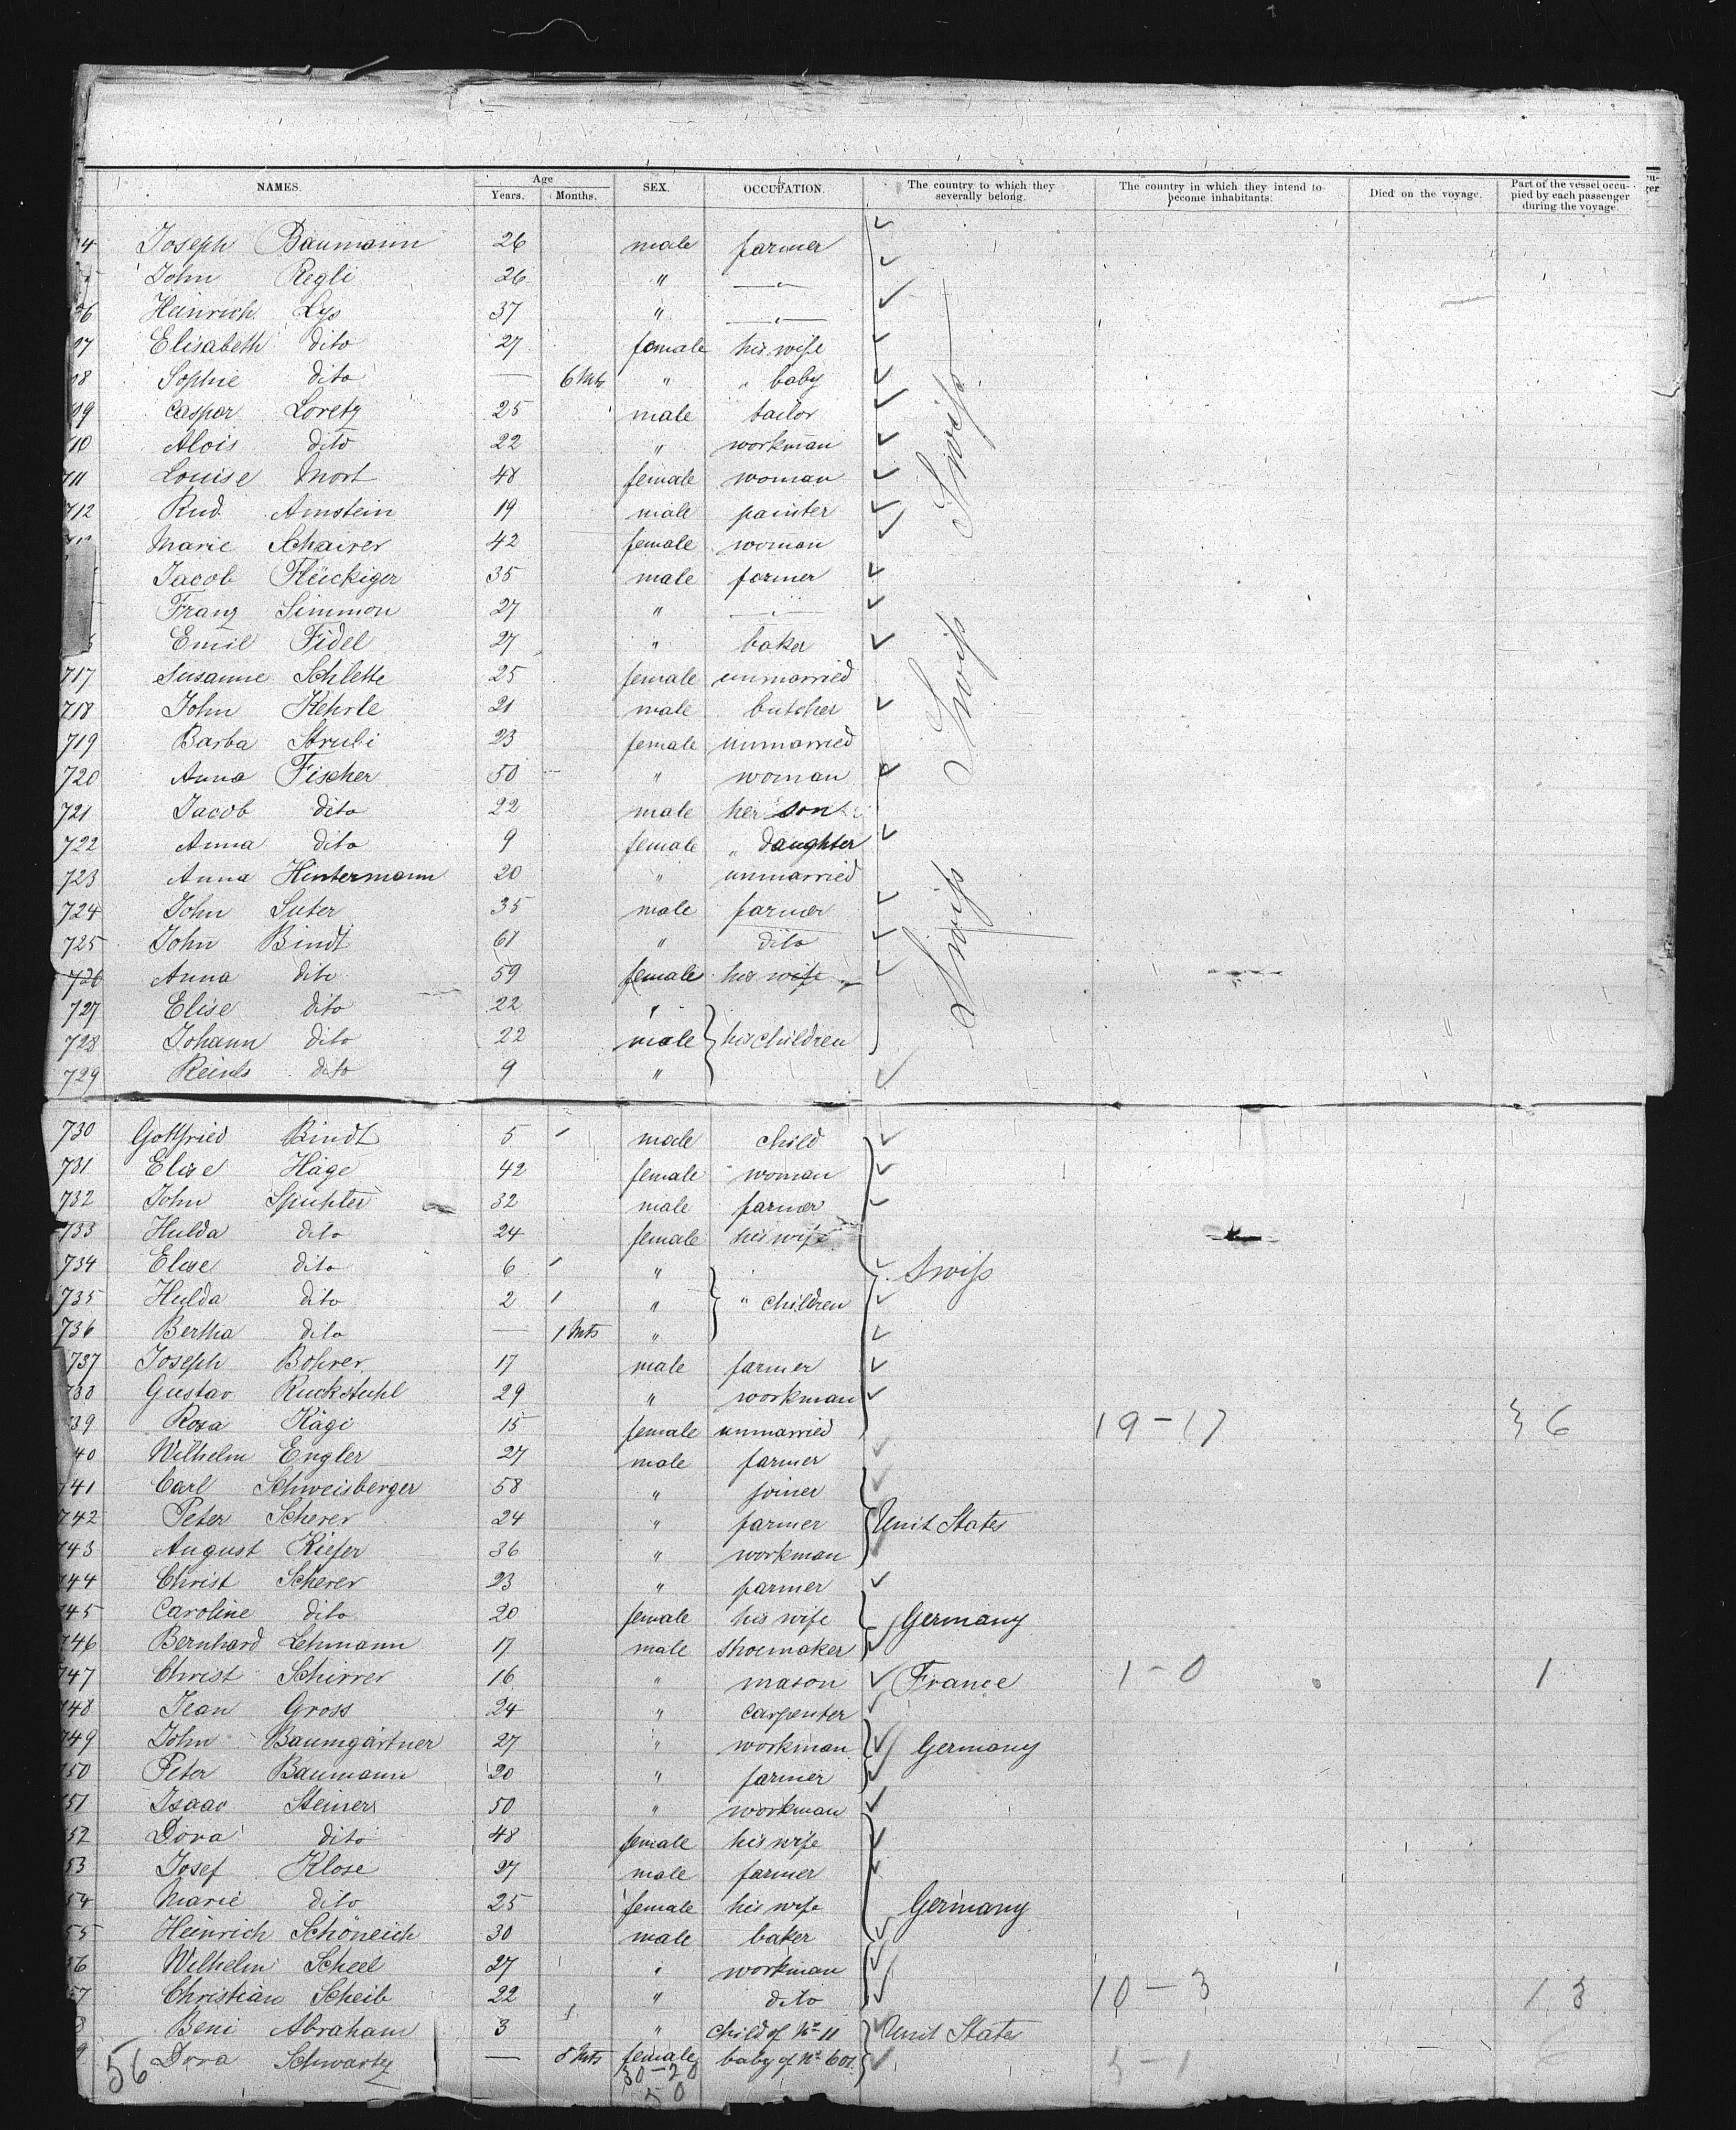 NAMES. Age Years. Months. SEX. OCCUPATION. The country to which they severally belong. The country in which they intend to become inhabitants. Died on the voyage. Part of the vessel occupied by each passenger during the voyage.
4 Joseph Baumann 26 male farmer
John Regli 26 " "
06 Heinrich Lys 37 " "
07 Elisabeth dito 27 female his wife
08 Sophie dito — 6 Mts " " baby
09 Caspar Loretz 25 male tailor Swiss
10 Alois dito 22 " workman
711 Louise Mort 48 female woman
712 Rud. Amstein 19 male painter
Marie Schairer 42 female woman
Jacob Flückiger 35 male farmer
Franz Simmon 27 " "
Emil Fidel 27 " baker
717 Susanne Schlette 25 female unmarried Swiss
718 John Kehrle 21 male butcher
719 Barba Strubi 23 female unmarried
720 Anna Fischer 50 " woman
721 Jacob dito 22 male her son
722 Anna dito 9 female " daughter
723 Anna Hintermann 20 " unmarried
724 John Suter 35 male farmer Swiss
725 John Bindt 61 " dito
726 Anna dito 59 female his wife
727 Elise dito 22 "
728 Johann dito 22 male his children
729 dito 9 "
730 Gottfried Bindt 5 male child
731 Elise Häge 42 female woman
732 John 32 male farmer
733 Hulda dito 24 female his wife
734 Elise dito 6 " Swiss
735 Hulda dito 2 " " children
736 Bertha dito — 1 Mts "
737 Joseph Bohrer 17 male farmer
738 Gustav Ruckstuhl 29 " workman
739 Rosa Kägi 15 female unmarried 19-17 36
740 Wilhelm Engler 27 male farmer
741 Carl Schweisberger 58 " joiner
742 Peter Scherer 24 " farmer Unit States
743 August Kiefer 36 " workman
744 Christ Scherer 23 " farmer
745 Caroline dito 20 female his wife Germany
746 Bernhard Lehmann 17 male shoemaker
747 Christ Schirrer 16 " mason France 1-0 1
748 Jean Gross 24 " carpenter
749 John Baumgärtner 27 " workman Germany
750 Peter Baumann 20 " farmer
51 Isaac Steiner 50 " workman
52 Dora dito 48 female his wife
53 Josef Klose 27 male farmer
54 Marie dito 25 female his wife Germany
55 Heinrich Schöneich 30 male baker
56 Wilhelm Scheel 27 " workman
57 Christian Scheib 22 " dito 10-3 13
8 Beni Abraham 3 " child of No 11 Unit States
9 Dora Schwartz — 8 Mts female baby of No 601 5-1 6
56 30-20
50